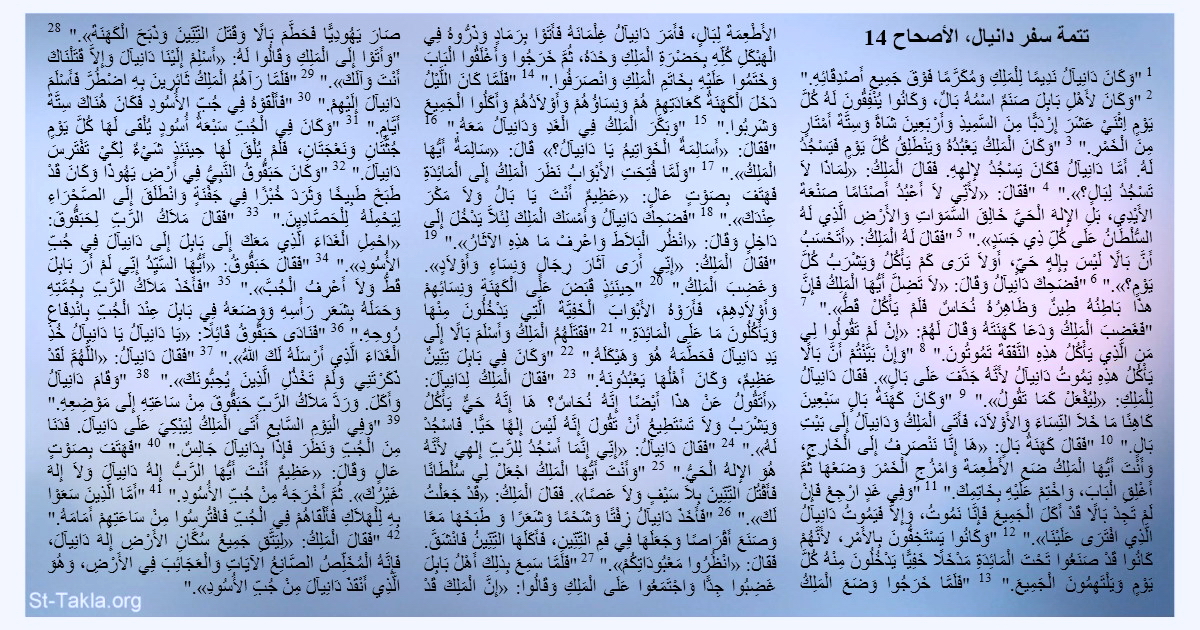 تتمة سفر دانيال، الأصحاح 14
1 "وَكَانَ دَانِيآلُ نَدِيمًا لِلْمَلِكِ وَمُكَرَّمًا فَوْقَ جَمِيعِ أَصْدِقَائِهِ."
2 "وَكَانَ لأَهْلِ بَابِلَ صَنَمٌ اسْمُهُ بَالُ، وَكَانُوا يُنْفِقُونَ لَهُ كُلَّ
يَوْمٍ اِثْنَيْ عَشَرَ إِرْدَبًّا مِنَ السَّمِيذِ وَأَرْبَعِينَ شَاةً وَسِتَّةَ أَمْتَارٍ
مِنَ الْخَمْرِ." 3 "وَكَانَ الْمَلِكُ يَعْبُدُهُ وَيَنْطَلِقُ كُلَّ يَوْمٍ فَيَسْجُدُ
لَهُ. أَمَّا دَانِيآلُ فَكَانَ يَسْجُدُ لإِلهِهِ. فَقَالَ الْمَلِكُ: «لِمَاذَا لاَ
تَسْجُدُ لِبَالَ؟»." 4 "فَقَالَ: «لأَنِّي لاَ أَعْبُدُ أَصْنَامًا صَنْعَةَ
الأَيْدِي، بَلِ الإِلهَ الْحَيَّ خَالِقَ السَّمَوَاتِ وَالأَرْضِ الَّذِي لَهُ
السُّلْطَانُ عَلَى كُلِّ ذِي جَسَدٍ»." 5 "فَقَالَ لَهُ الْمَلِكُ: «أَتَحْسَبُ
أَنَّ بَالًا لَيْسَ بِإِلهٍ حَيٍّ، أَوَلاَ تَرَى كَمْ يَأْكُلُ وَيَشْرَبُ كُلَّ
يَوْمٍ؟»." 6 "فَضَحِكَ دَانِيآلُ وَقَالَ: «لاَ تَضِلَّ أَيُّهَا الْمَلِكُ فَإِنَّ
هذَا بَاطِنُهُ طِينٌ وَظَاهِرُهُ نُحَاسٌ فَلَمْ يَأْكُلْ قَطُّ»." 7
"فَغَضِبَ الْمَلِكُ وَدَعَا كَهَنَتَهُ وَقَالَ لَهُمْ: «إِنْ لَمْ تَقُولُوا لِي
مَنِ الَّذِي يَأْكُلُ هذِهِ النَّفَقَةَ تَمُوتُونَ." 8 "وَإِنْ بَيَّنْتُمْ أَنَّ بَالًا
يَأْكُلُ هذِهِ يَمُوتُ دَانِيآلُ لأَنَّهُ جَدَّفَ عَلَى بَالَ». فَقَالَ دَانِيآلُ
لِلْمَلِكِ: «لِيُفْعَلْ كَمَا تَقُولُ»." 9 "وَكَانَ كَهَنَةُ بَالَ سَبْعِينَ
كَاهِنًا مَا خَلاَ النِّسَاءَ وَالأَوْلاَدَ، فَأَتَى الْمَلِكُ وَدَانِيآلُ إِلَى بَيْتِ
بَالَ." 10 "فَقَالَ كَهَنَةُ بَالَ: «هَا إِنَّا نَنْصَرِفُ إِلَى الْخَارِجِ،
وَأَنْتَ أَيُّهَا الْمَلِكُ ضَعِ الأَطْعِمَةَ وَامْزُجِ الْخَمْرَ وَضَعْهَا ثُمَّ
أَغْلِقِ الْبَابَ، وَاخْتِمْ عَلَيْهِ بِخَاتِمِكَ." 11 "وَفِي غَدٍ ارْجِعْ فَإِنْ
لَمْ تَجِدْ بَالًا قَدْ أَكَلَ الْجَمِيعَ فَإِنَّا نَمُوتُ، وَإِلاَّ فَيَمُوتُ دَانِيآلُ
الَّذِي افْتَرَى عَلَيْنَا»." 12 "وَكَانُوا يَسْتَخِفُّونَ بِالأَمْرِ، لأَنَّهُمْ
كَانُوا قَدْ صَنَعُوا تَحْتَ الْمَائِدَةِ مَدْخَلًا خَفِيًّا يَدْخُلُونَ مِنْهُ كُلَّ
يَوْمٍ وَيَلْتَهِمُونَ الْجَمِيعَ." 13 "فَلَمَّا خَرَجُوا وَضَعَ الْمَلِكُ
الأَطْعِمَةَ لِبَالَ، فَأَمَرَ دَانِيآلُ غِلْمَانَهُ فَأَتَوْا بِرَمَادٍ وَذَرُّوهُ فِي
الْهَيْكَلِ كُلِّهِ بِحَضْرَةِ الْمَلِكِ وَحْدَهُ، ثُمَّ خَرَجُوا وَأَغْلَقُوا الْبَابَ
وَخَتَمُوا عَلَيْهِ بِخَاتِمِ الْمَلِكِ وَانْصَرَفُوا." 14 "فَلَمَّا كَانَ اللَّيْلُ
دَخَلَ الْكَهَنَةُ كَعَادَتِهِمْ هُمْ وَنِسَاؤُهُمْ وَأَوْلاَدُهُمْ وَأَكَلُوا الْجَمِيعَ
وَشَرِبُوا." 15 "وَبَكَّرَ الْمَلِكُ فِي الْغَدِ وَدَانِيآلُ مَعَهُ" 16
"فَقَالَ: «أَسَالِمَةٌ الْخَوَاتِيمُ يَا دَانِيآلُ؟» قَالَ: «سَالِمَةٌ أَيُّهَا
الْمَلِكُ»." 17 "وَلَمَّا فُتِحَتِ الأَبْوَابُ نَظَرَ الْمَلِكُ إِلَى الْمَائِدَةِ
فَهَتَفَ بِصَوْتٍ عَالٍ: «عَظِيمٌ أَنْتَ يَا بَالُ وَلاَ مَكْرَ
عِنْدَكَ»." 18 "فَضَحِكَ دَانِيآلُ وَأَمْسَكَ الْمَلِكَ لِئَلاَّ يَدْخُلَ إِلَى
دَاخِلٍ وَقَالَ: «انْظُرِ الْبَلاَطَ وَاعْرِفْ مَا هذِهِ الآثَارُ»." 19
"فَقَالَ الْمَلِكُ: «إِنِّي أَرَى آثَارَ رِجَالٍ وَنِسَاءٍ وَأَوْلاَدٍ».
وَغَضِبَ الْمَلِكُ." 20 "حِينَئِذٍ قَبَضَ عَلَى الْكَهَنَةِ وَنِسَائِهِمْ
وَأَوْلاَدِهِمْ، فَأَرَوْهُ الأَبْوَابَ الْخَفِيَّةَ الَّتِي يَدْخُلُونَ مِنْهَا
وَيَأْكُلُونَ مَا عَلَى الْمَائِدَةِ." 21 "فَقَتَلَهُمُ الْمَلِكُ وَأَسْلَمَ بَالًا إِلَى
يَدِ دَانِيآلَ فَحَطَّمَهُ هُوَ وَهَيْكَلَهُ." 22 "وَكَانَ فِي بَابِلَ تِنِّينٌ
عَظِيمٌ، وَكَانَ أَهْلُهَا يَعْبُدُونَهُ." 23 "فَقَالَ الْمَلِكُ لِدَانِيآلَ:
«أَتَقُولُ عَنْ هذَا أَيْضًا إِنَّهُ نُحَاسٌ؟ هَا إِنَّهُ حَيٌّ يَأْكُلُ
وَيَشْرَبُ وَلاَ تَسْتَطِيعُ أَنْ تَقُولَ إِنَّهُ لَيْسَ إِلهًا حَيًّا. فَاسْجُدْ
لَهُ»." 24 "فَقَالَ دَانِيآلُ: «إِنِّي إِنَّمَا أَسْجُدُ لِلرَّبِّ إِلهِي لأَنَّهُ
هُوَ الإِلهُ الْحَيُّ." 25 "وَأَنْتَ أَيُّهَا الْمَلِكُ اجْعَلْ لِي سُلْطَانًا
فَأَقْتُلَ التِّنِّينَ بِلاَ سَيْفٍ وَلاَ عَصًا». فَقَالَ الْمَلِكُ: «قَدْ جَعَلْتُ
لَكَ»." 26 "فَأَخَذَ دَانِيآلُ زِفْتًا وَشَحْمًا وَشَعَرًا وَ طَبَخَهَا مَعًا
وَصَنَعَ أَقْرَاصًا وَجَعَلَهَا فِي فَمِ التِّنِّينِ، فَأَكَلَهَا التِّنِّينُ فَانْشَقَّ.
فَقَالَ: «انْظُرُوا مَعْبُودَاتِكُمْ»." 27 "فَلَمَّا سَمِعَ بِذلِكَ أَهْلُ بَابِلَ
غَضِبُوا جِدًّا وَاجْتَمَعُوا عَلَى الْمَلِكِ وَقَالُوا: «إِنَّ الْمَلِكَ قَدْ
صَارَ يَهُودِيًّا فَحَطَّمَ بَالًا وَقَتَلَ التِّنِّينَ وَذَبَحَ الْكَهَنَةَ»." 28
"وَأَتَوْا إِلَى الْمَلِكِ وَقَالُوا لَهُ: «أَسْلِمْ إِلَيْنَا دَانِيآلَ وَإِلاَّ قَتَلْنَاكَ
أَنْتَ وَآلَكَ»." 29 "فَلَمَّا رَآهُمُ الْمَلِكُ ثَائِرِينَ بِهِ اضْطُرَّ فَأَسْلَمَ
دَانِيآلَ إِلَيْهِمْ." 30 "فَأَلْقَوْهُ فِي جُبِّ الأُسُودِ فَكَانَ هُنَاكَ سِتَّةَ
أَيَّامٍ." 31 "وَكَانَ فِي الْجُبِّ سَبْعَةُ أُسُودٍ يُلْقَى لَهَا كُلَّ يَوْمٍ
جُثَّتَانِ وَنَعْجَتَانِ، فَلَمْ يُلْقَ لَهَا حِينَئِذٍ شَيْءٌ لِكَيْ تَفْتَرِسَ
دَانِيآلَ." 32 "وَكَانَ حَبَقُّوقُ النَّبِيُّ فِي أَرْضِ يَهُوذَا وَكَانَ قَدْ
طَبَخَ طَبِيخًا وَثَرَدَ خُبْزًا فِي جَفْنَةٍ وَانْطَلَقَ إِلَى الصَّحْرَاءِ
لِيَحْمِلَهُ لِلْحَصَّادِينَ." 33 "فَقَالَ مَلاَكُ الرَّبِّ لِحَبَقُّوقَ:
«احْمِلِ الْغَدَاءَ الَّذِي مَعَكَ إِلَى بَابِلَ إِلَى دَانِيآلَ فِي جُبِّ
الأُسُودِ»." 34 "فَقَالَ حَبَقُّوقُ: «أَيُّهَا السَّيِّدُ إِنِّي لَمْ أَرَ بَابِلَ
قَطُّ وَلاَ أَعْرِفُ الْجُبَّ»." 35 "فَأَخَذَ مَلاَكُ الرَّبِّ بِجُمَّتِهِ
وَحَمَلَهُ بِشَعَرِ رَأْسِهِ وَوَضَعَهُ فِي بَابِلَ عِنْدَ الْجُبِّ بِانْدِفَاعِ
رُوحِهِ." 36 "فَنَادَى حَبَقُّوقُ قَائِلًا: «يَا دَانِيآلُ يَا دَانِيآلُ خُذِ
الْغَدَاءَ الَّذِي أَرْسَلَهُ لَكَ اللهُ»." 37 "فَقَالَ دَانِيآلُ: «اللَّهُمَّ لَقَدْ
ذَكَرْتَنِي وَلَمْ تَخْذُلِ الَّذِينَ يُحِبُّونَكَ»." 38 "وَقَامَ دَانِيآلُ
وَأَكَلَ. وَرَدَّ مَلاَكُ الرَّبِّ حَبَقُّوقَ مِنْ سَاعَتِهِ إِلَى مَوْضِعِهِ."
39 "وَفِي الْيَوْمِ السَّابِعِ أَتَى الْمَلِكُ لِيَبْكِيَ عَلَى دَانِيآلَ. فَدَنَا
مِنَ الْجُبِّ وَنَظَرَ فَإِذَا بِدَانِيآلَ جَالِسٌ." 40 "فَهَتَفَ بِصَوْتٍ
عَالٍ وَقَالَ: «عَظِيمٌ أَنْتَ أَيُّهَا الرَّبُّ إِلهُ دَانِيآلَ وَلاَ إِلهَ
غَيْرُكَ». ثُمَّ أَخْرَجَهُ مِنْ جُبِّ الأُسُودِ." 41 "أَمَّا الَّذِينَ سَعَوْا
بِهِ لِلْهَلاَكِ فَأَلْقَاهُمْ فِي الْجُبِّ فَافْتُرِسُوا مِنْ سَاعَتِهِمْ أَمَامَهُ."
42 "فَقَالَ الْمَلِكُ: «لِيَتَّقِ جَمِيعُ سُكَّانِ الأَرْضِ إِلهَ دَانِيآلَ،
فَإِنَّهُ الْمُخَلِّصُ الصَّانِعُ الآيَاتِ وَالْعَجَائِبَ فِي الأَرْضِ، وَهُوَ
الَّذِي أَنْقَذَ دَانِيآلَ مِنْ جُبِّ الأُسُودِ»."
St-Takla.org